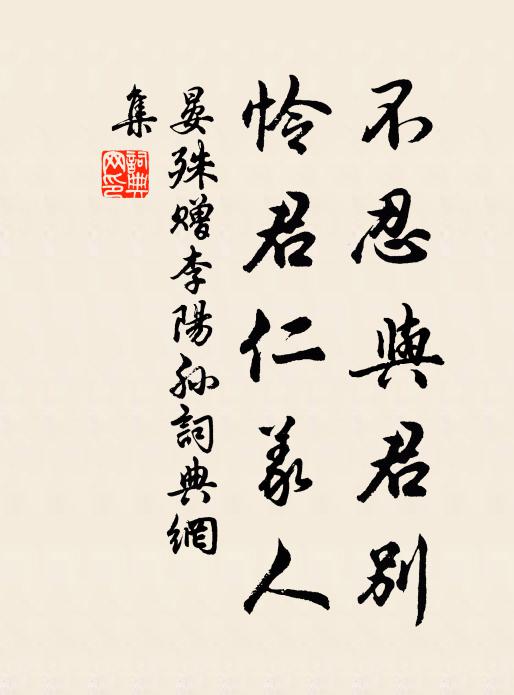 不忍與君別
憐君仁義人
晏殊贈李陽孫詞典網
集
詞典
网印